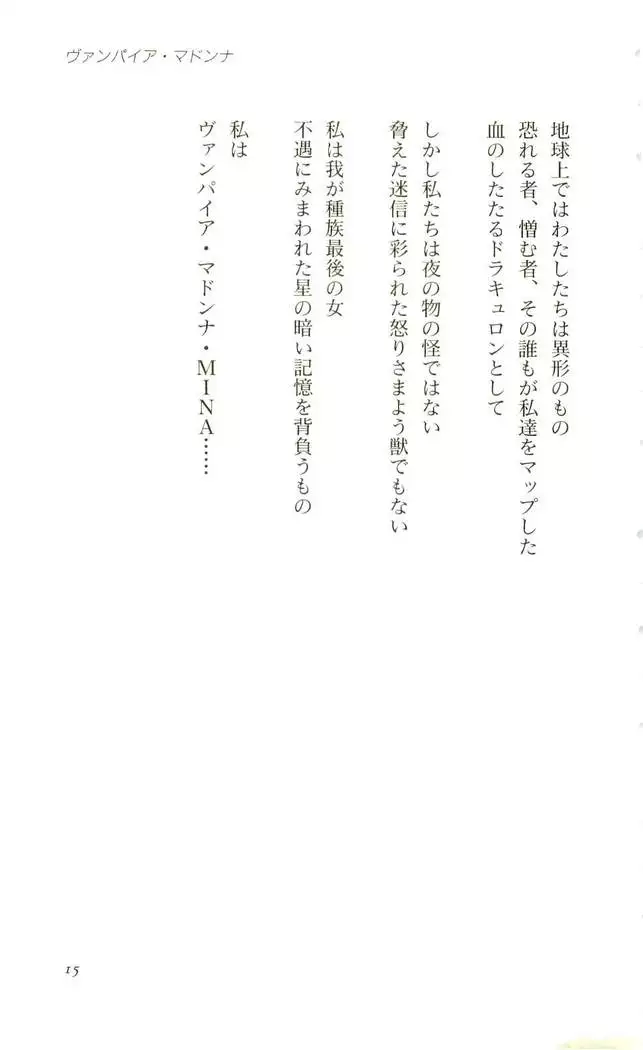 ヴァンパイア・マドンナ
地球上ではわたしたちは異形のもの
恐れる者、憎む者、その誰もが私達をマップした
血のしたたるドラキュロンとして
しかし私たちは夜の物の怪ではない
脅えた迷信に彩られた怒りさまよう獣でもない
私は我が種族最後の女
不遇にみまわれた星の暗い記憶を背負うもの
私は
ヴァンパイア・マドンナ・MINA……
15